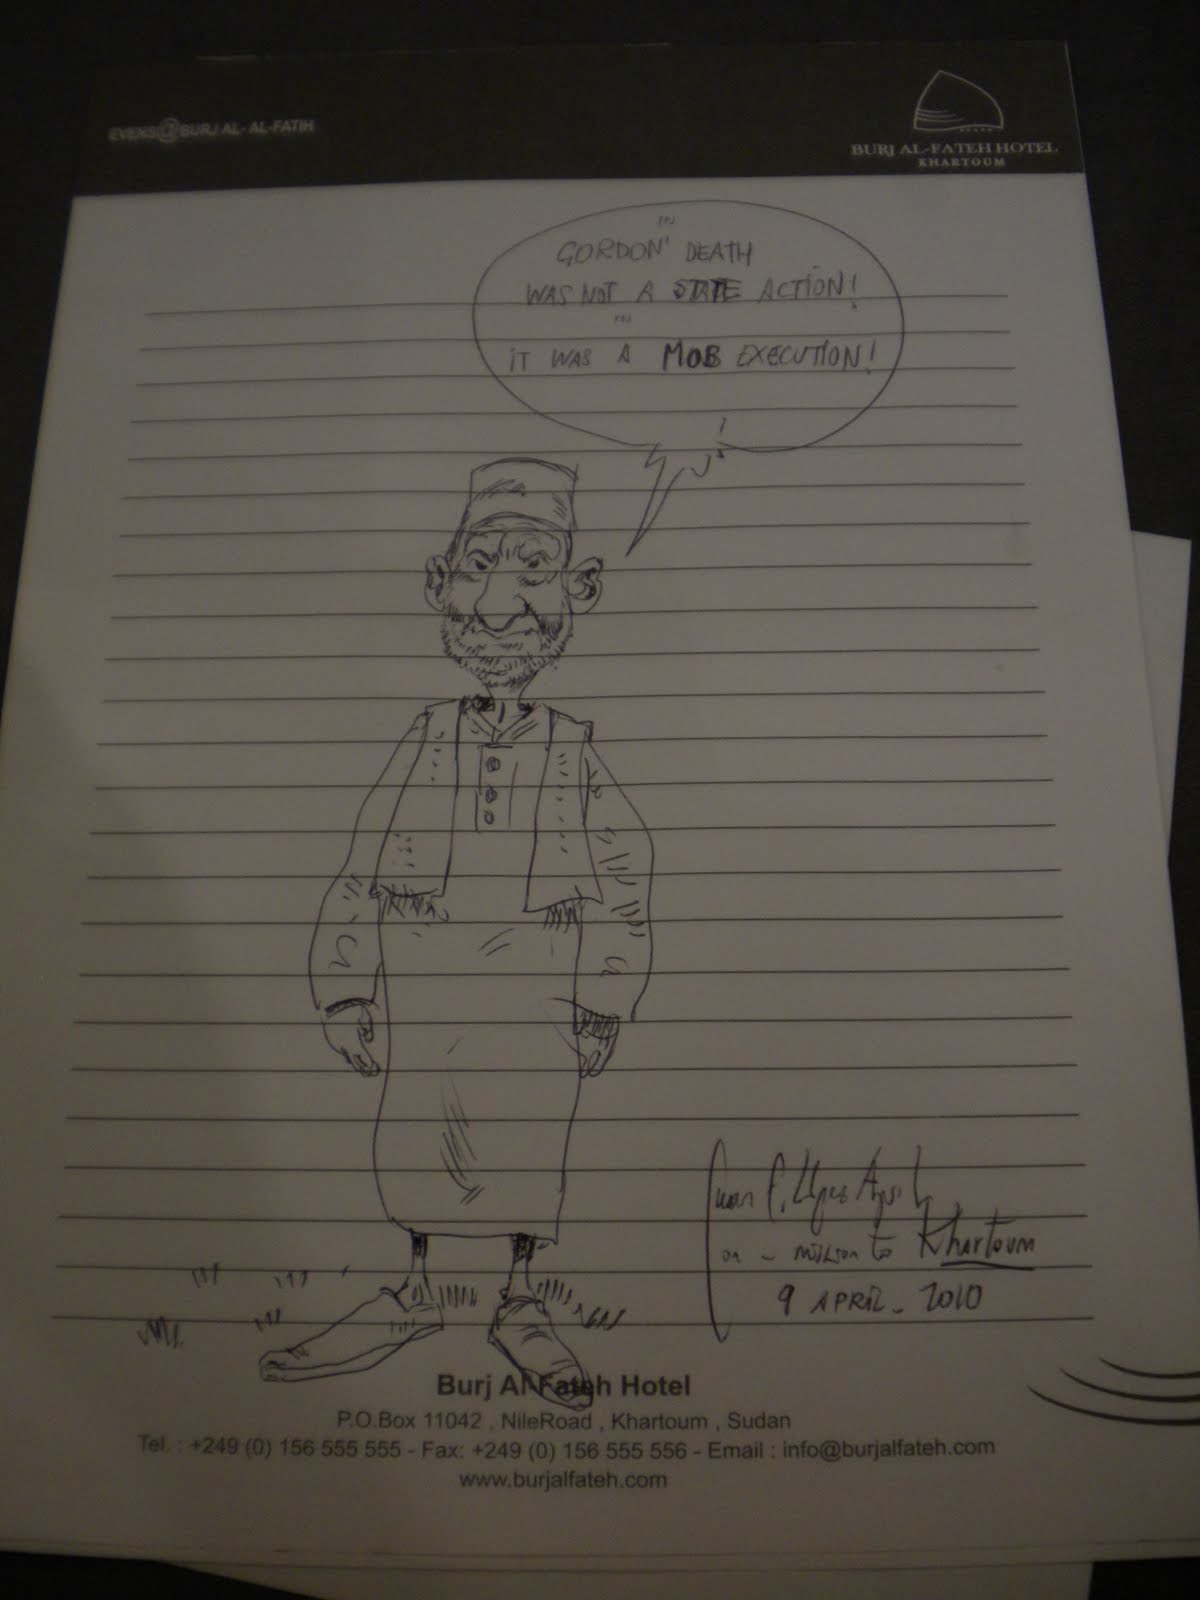 BURJ AL-FATEH HOTEL
KHARTOUM
GORDON' DEATH
WAS NOT A STATE ACTION!
IT WAS A MOB EXECUTION!
on mission to Khartoum
9 APRIL - 2010
Burj Al-Fateh Hotel
P.O.Box 11042 , NileRoad , Khartoum , Sudan
Tel. : +249 (0) 156 555 555 - Fax: +249 (0) 156 555 556 - Email : info@burjalfateh.com
www.burjalfateh.com